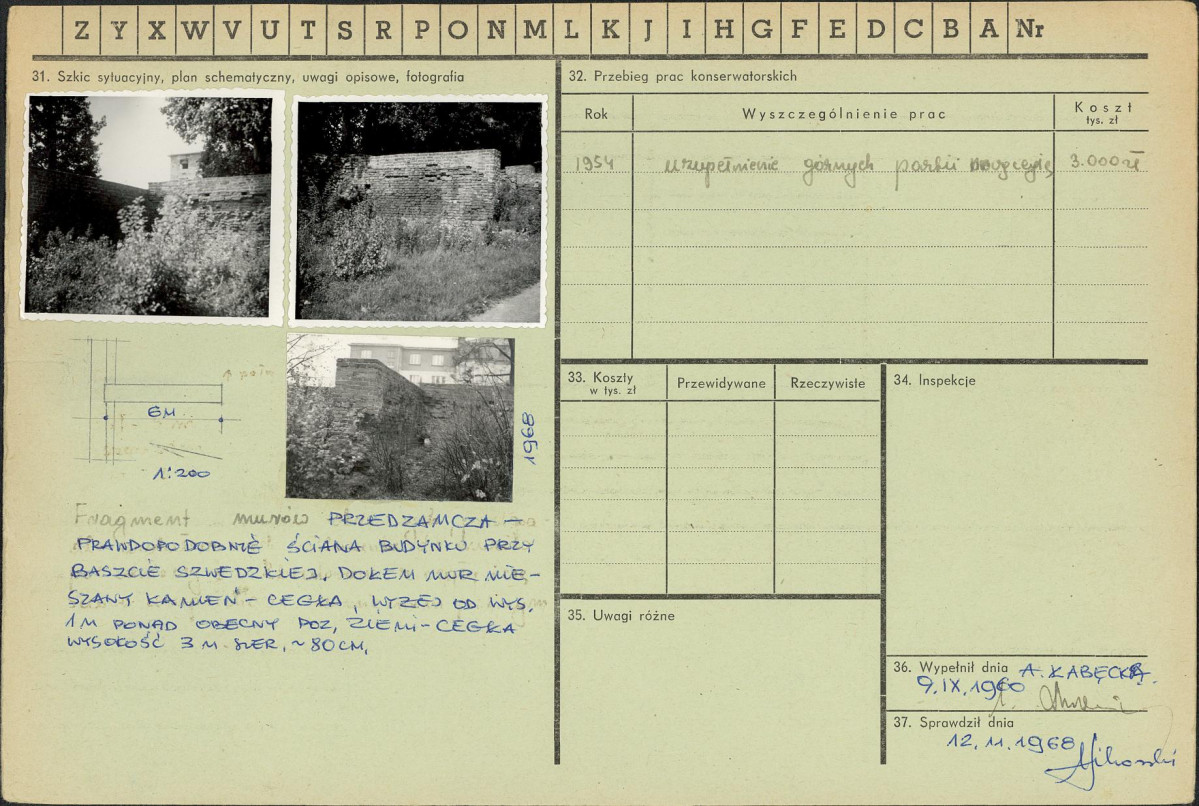 Z Y X W V U T S R P O N M L K J I H G F E D C B A Nr
31. Szkic sytuacyjny, plan schematyczny, uwagi opisowe, fotografia
1968
6M
1:200
Fragment murów PRZEDZAMCZA –
PRAWDOPODOBNIE ŚCIANA BUDYNKU PRZY
BASZCIE SZWEDZKIEJ. DOŁEM MUR MIE-
SZANY KAMIEŃ - CEGŁA, WYŻEJ OD WYS.
1M PONAD OBECNY POZ. ZIEMI - CEGŁA
WYSOKOŚĆ 3 M. SZER. ~ 80CM.
32. Przebieg prac konserwatorskich
Rok Wyszczególnienie prac Koszt
tys. zł
1954 uzupełnienie górnych partii 3.000 zł
33. Koszty
w tys. zł
Przewidywane Rzeczywiste
34. Inspekcje
35. Uwagi różne
36. Wypełnił dnia A. ŁABĘCKA
9.IX.1960
37. Sprawdził dnia
12.11.1968